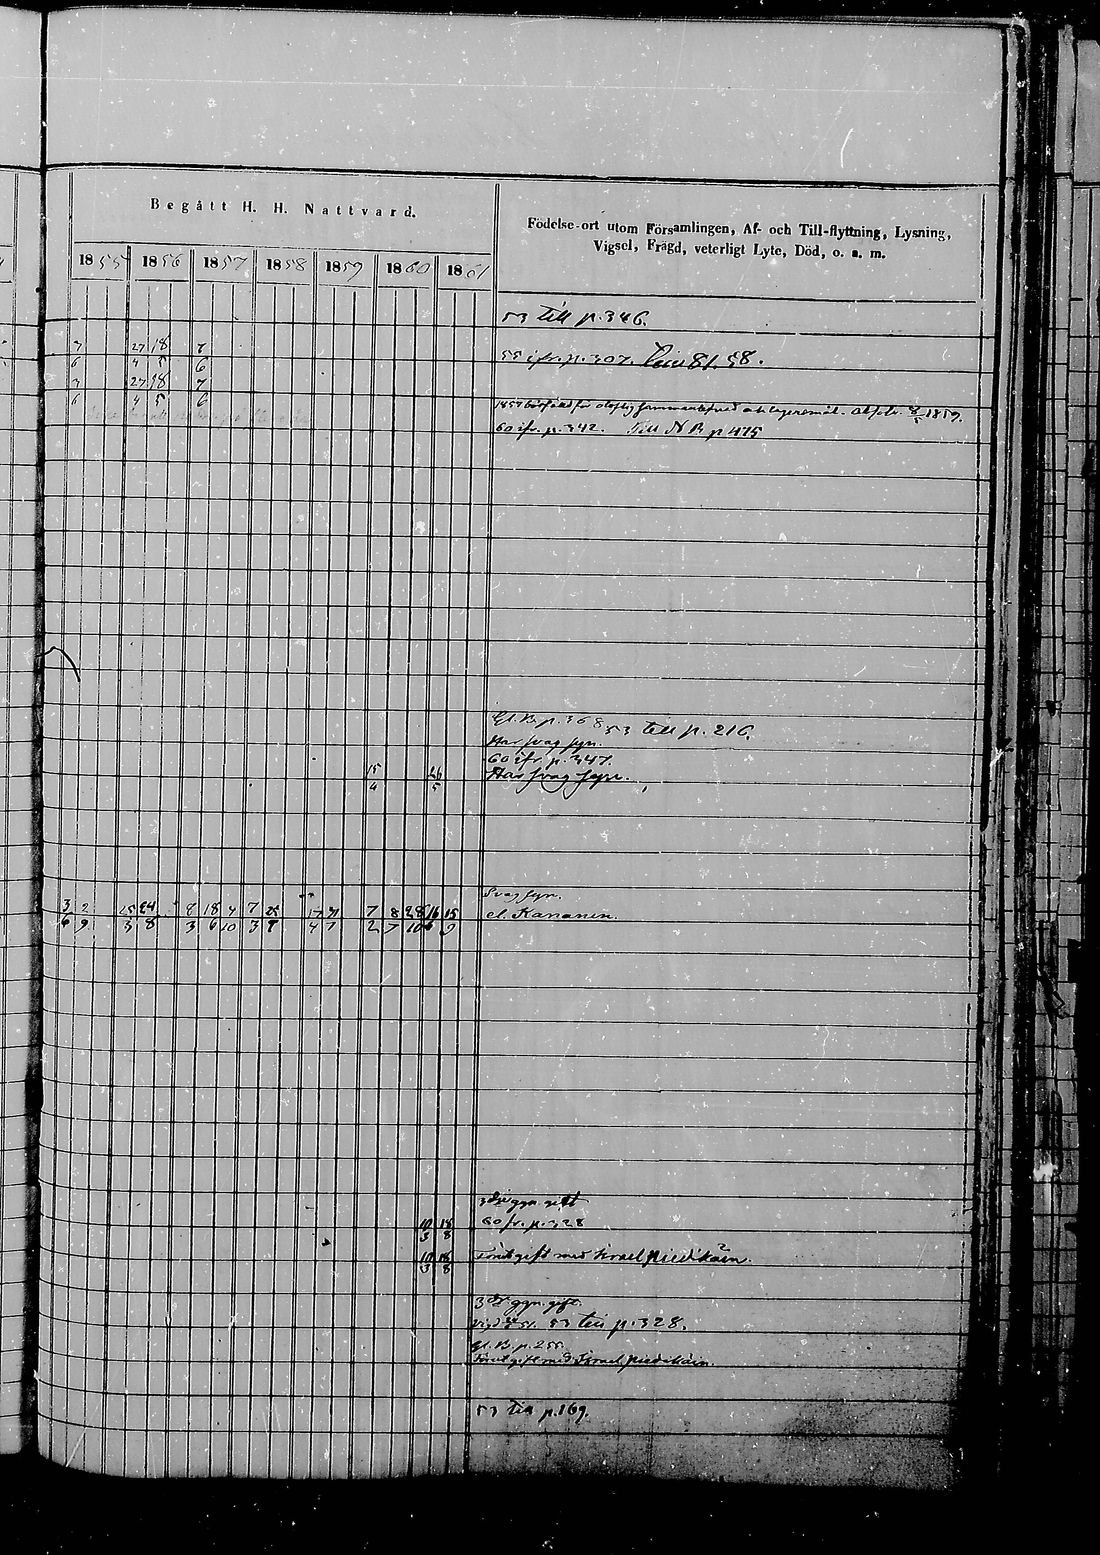 Begått H. H. Nattvard.
Födelse-ort utom Församlingen, Af- och Till-flyttning, Lysning,
Vigsel, Frägd, veterligt Lyte, Död, o. s. m.
1855 1856 1857 1858 1859 1860 1861
53 till p. 346.
7 27 18 7
6 4 5 6
55 ifr. p. 307.
7 27 18 7
6 4 5 6
1859.
60 ifr. p. 342. Till N B p 475
Gl. B. p. 368
53 till p. 216.
Har svag syn.
60 ifr. p. 347.
15 26
4 5
Har svag syn.
Svag syn.
3 2 15 24 8 18 4 7 25 17 31 7 8 28 16 15
6 9 3 8 3 6 10 3 7 4 7 2 7 10 6 9
el. Kananen.
3dje ggn gift
10 18
3 8
60 fr. p. 328
10 18
3 8
Förut gift med Israel Piedikäin.
3dje ggn. gift.
53 till p. 328.
Gl. B. p. 255.
Förut gift med Israel Piedikäin.
53 till p. 169.